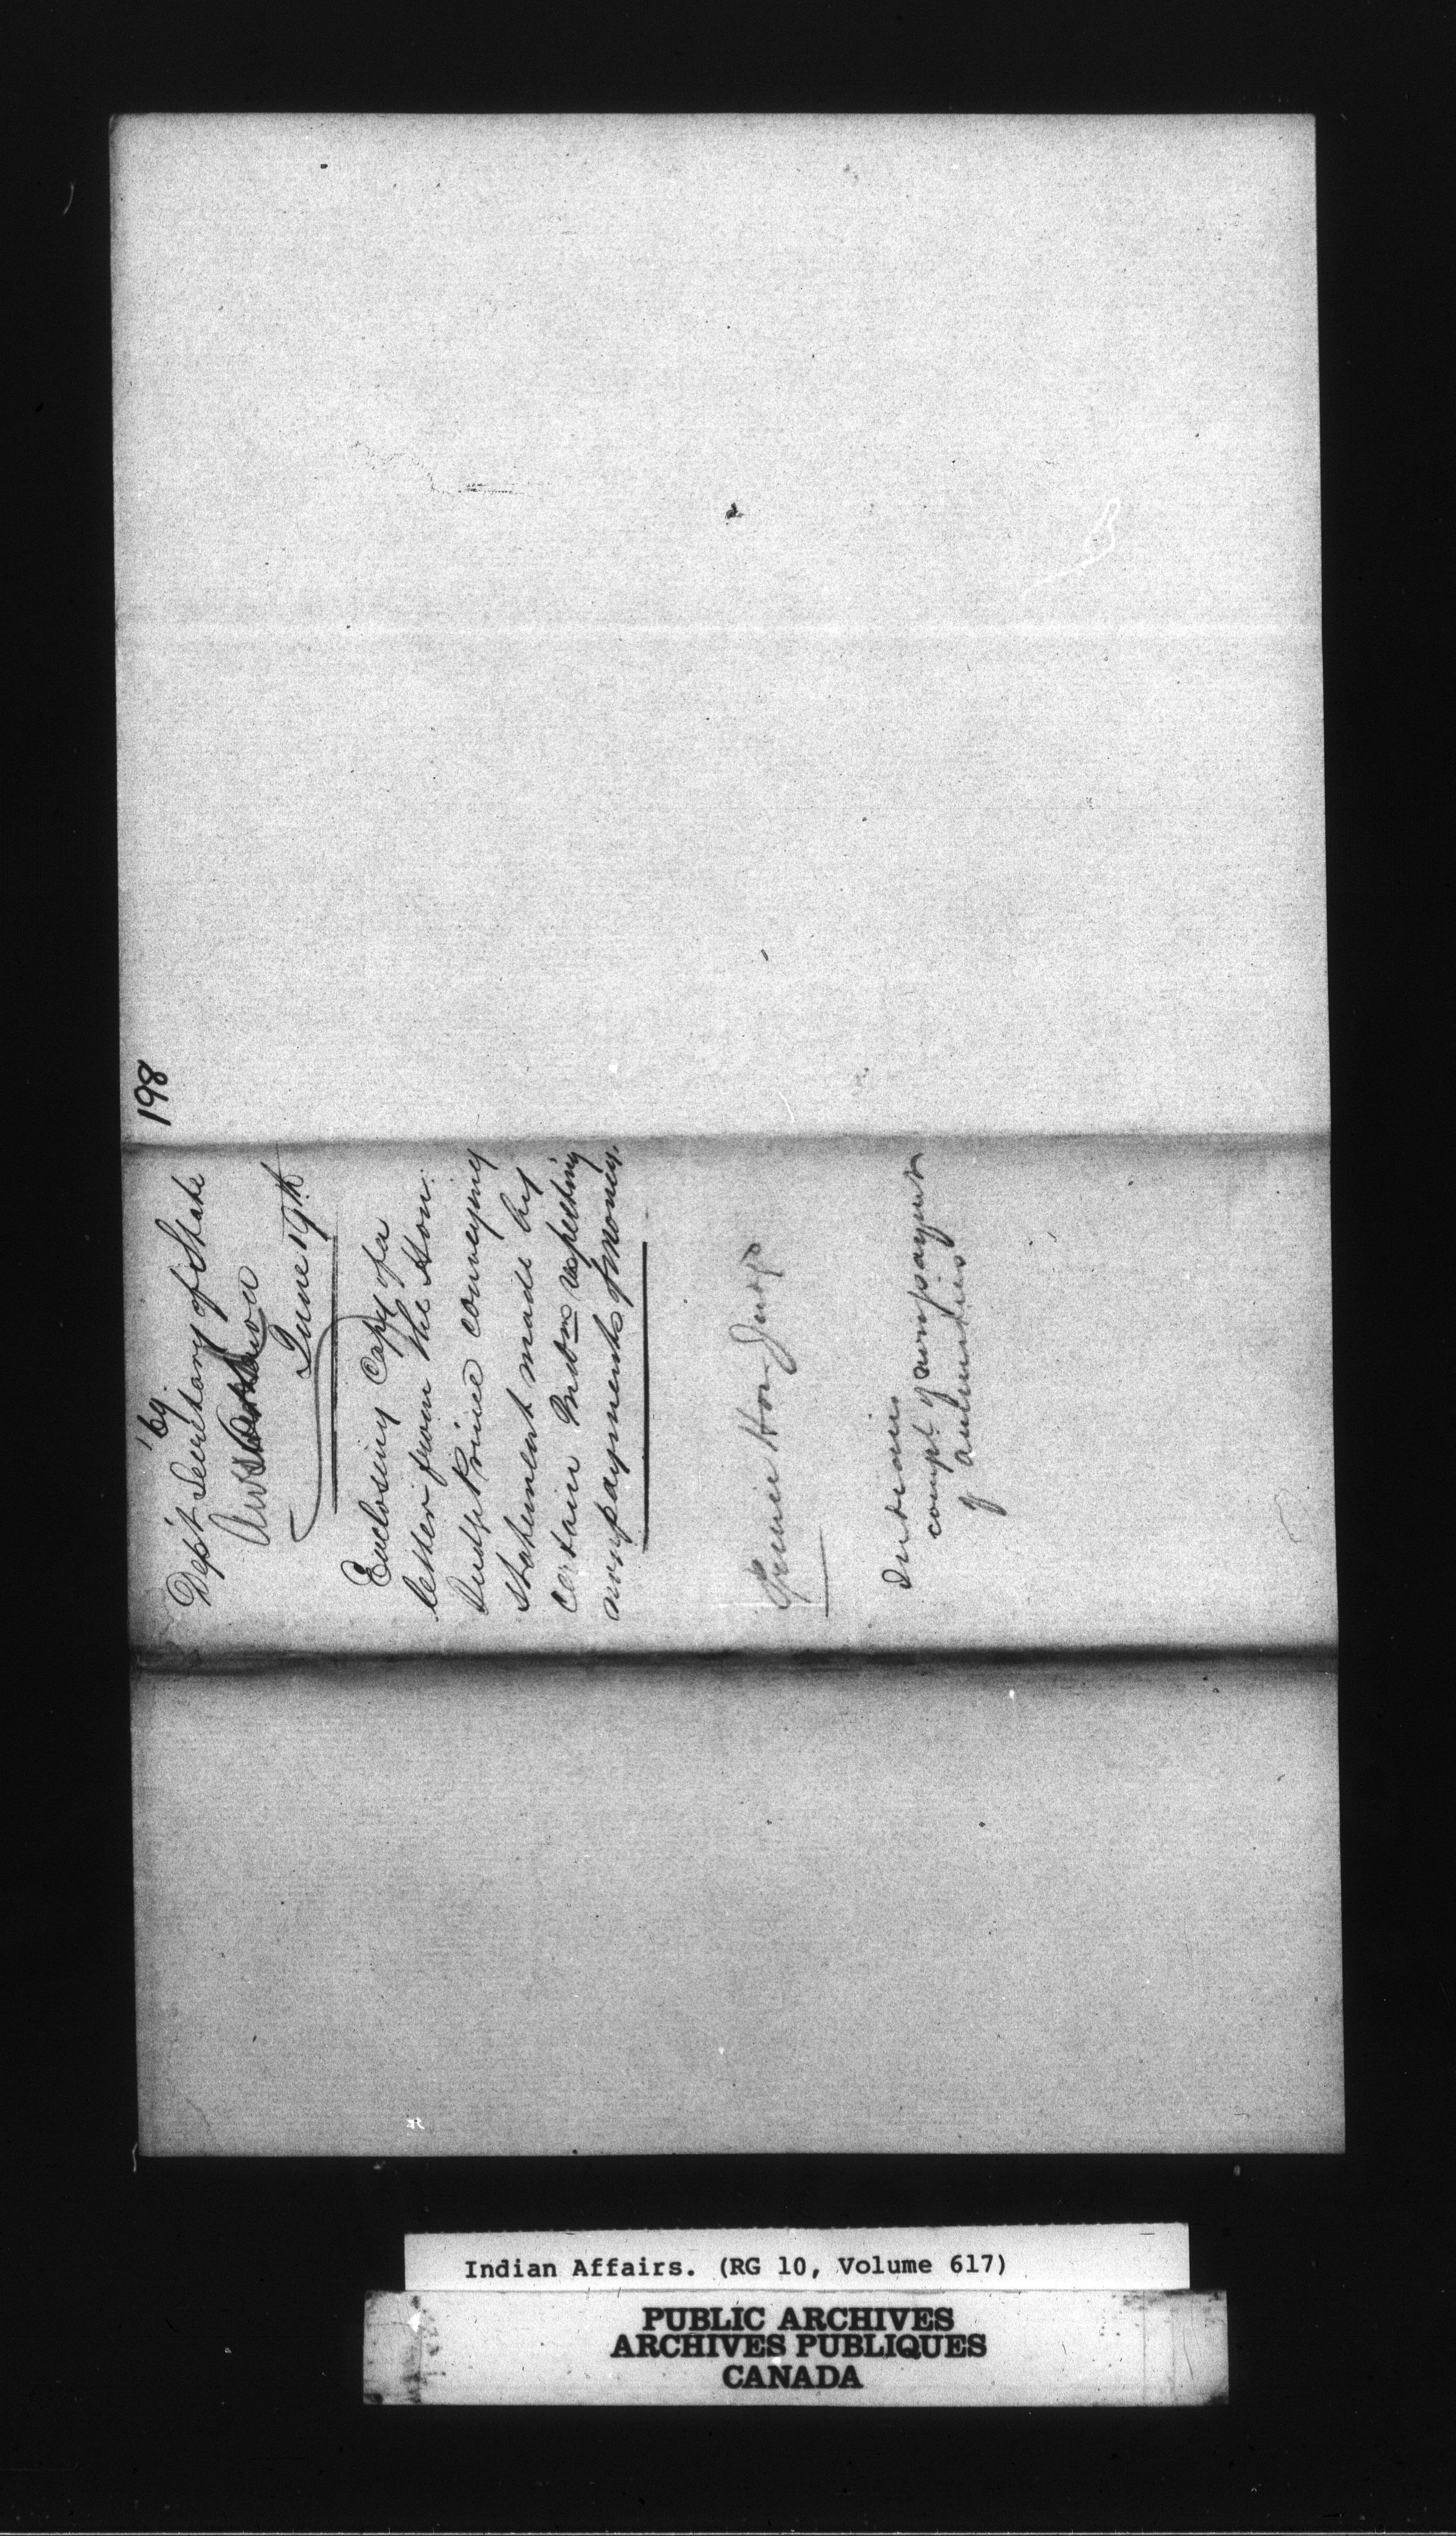 198
'69.
Dep't Secretary of State
June 19th
Enclosing Copy of a
letter from the Hon.
Judge Prince conveying
statement made by
certain Indns respecting
nonpayments of money.
Prince Hon Judge
Indians
compt. of nonpayment
of annuities
Indian Affairs. (RG 10, Volume 617)
PUBLIC ARCHIVES
ARCHIVES PUBLIQUES
CANADA